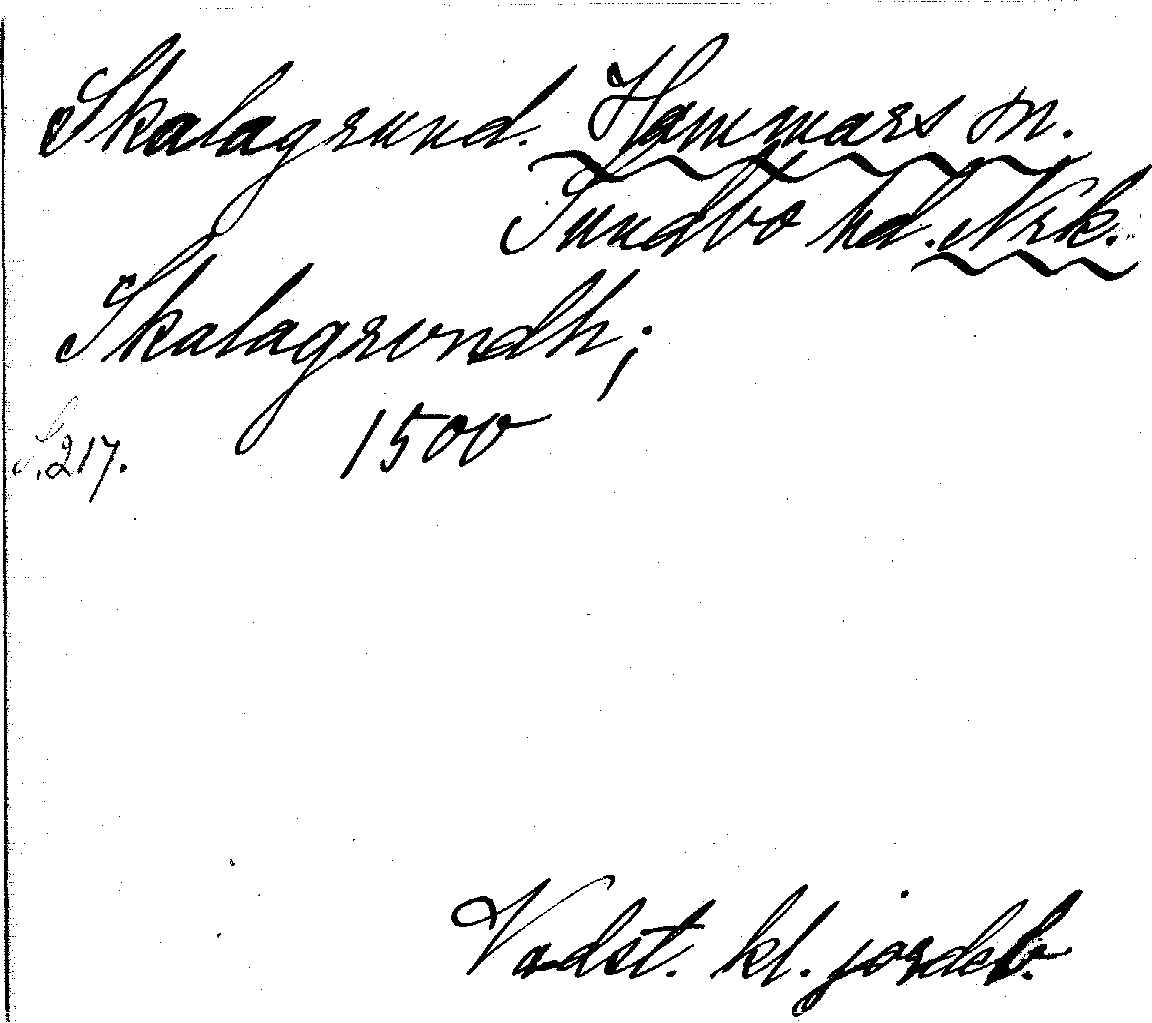 Skalagrund. Hammars sn.
Sundbo hd. Nrk.
Skalagrundh;
S. 217. 1500
Vadst. kl. jordeb.